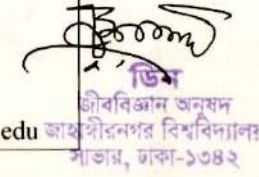 ডিন
জীববিজ্ঞান অনুষদ
edu জাহাঙ্গীরনগর বিশ্ববিদ্যালয়
সাভার, ঢাকা-১৩৪২